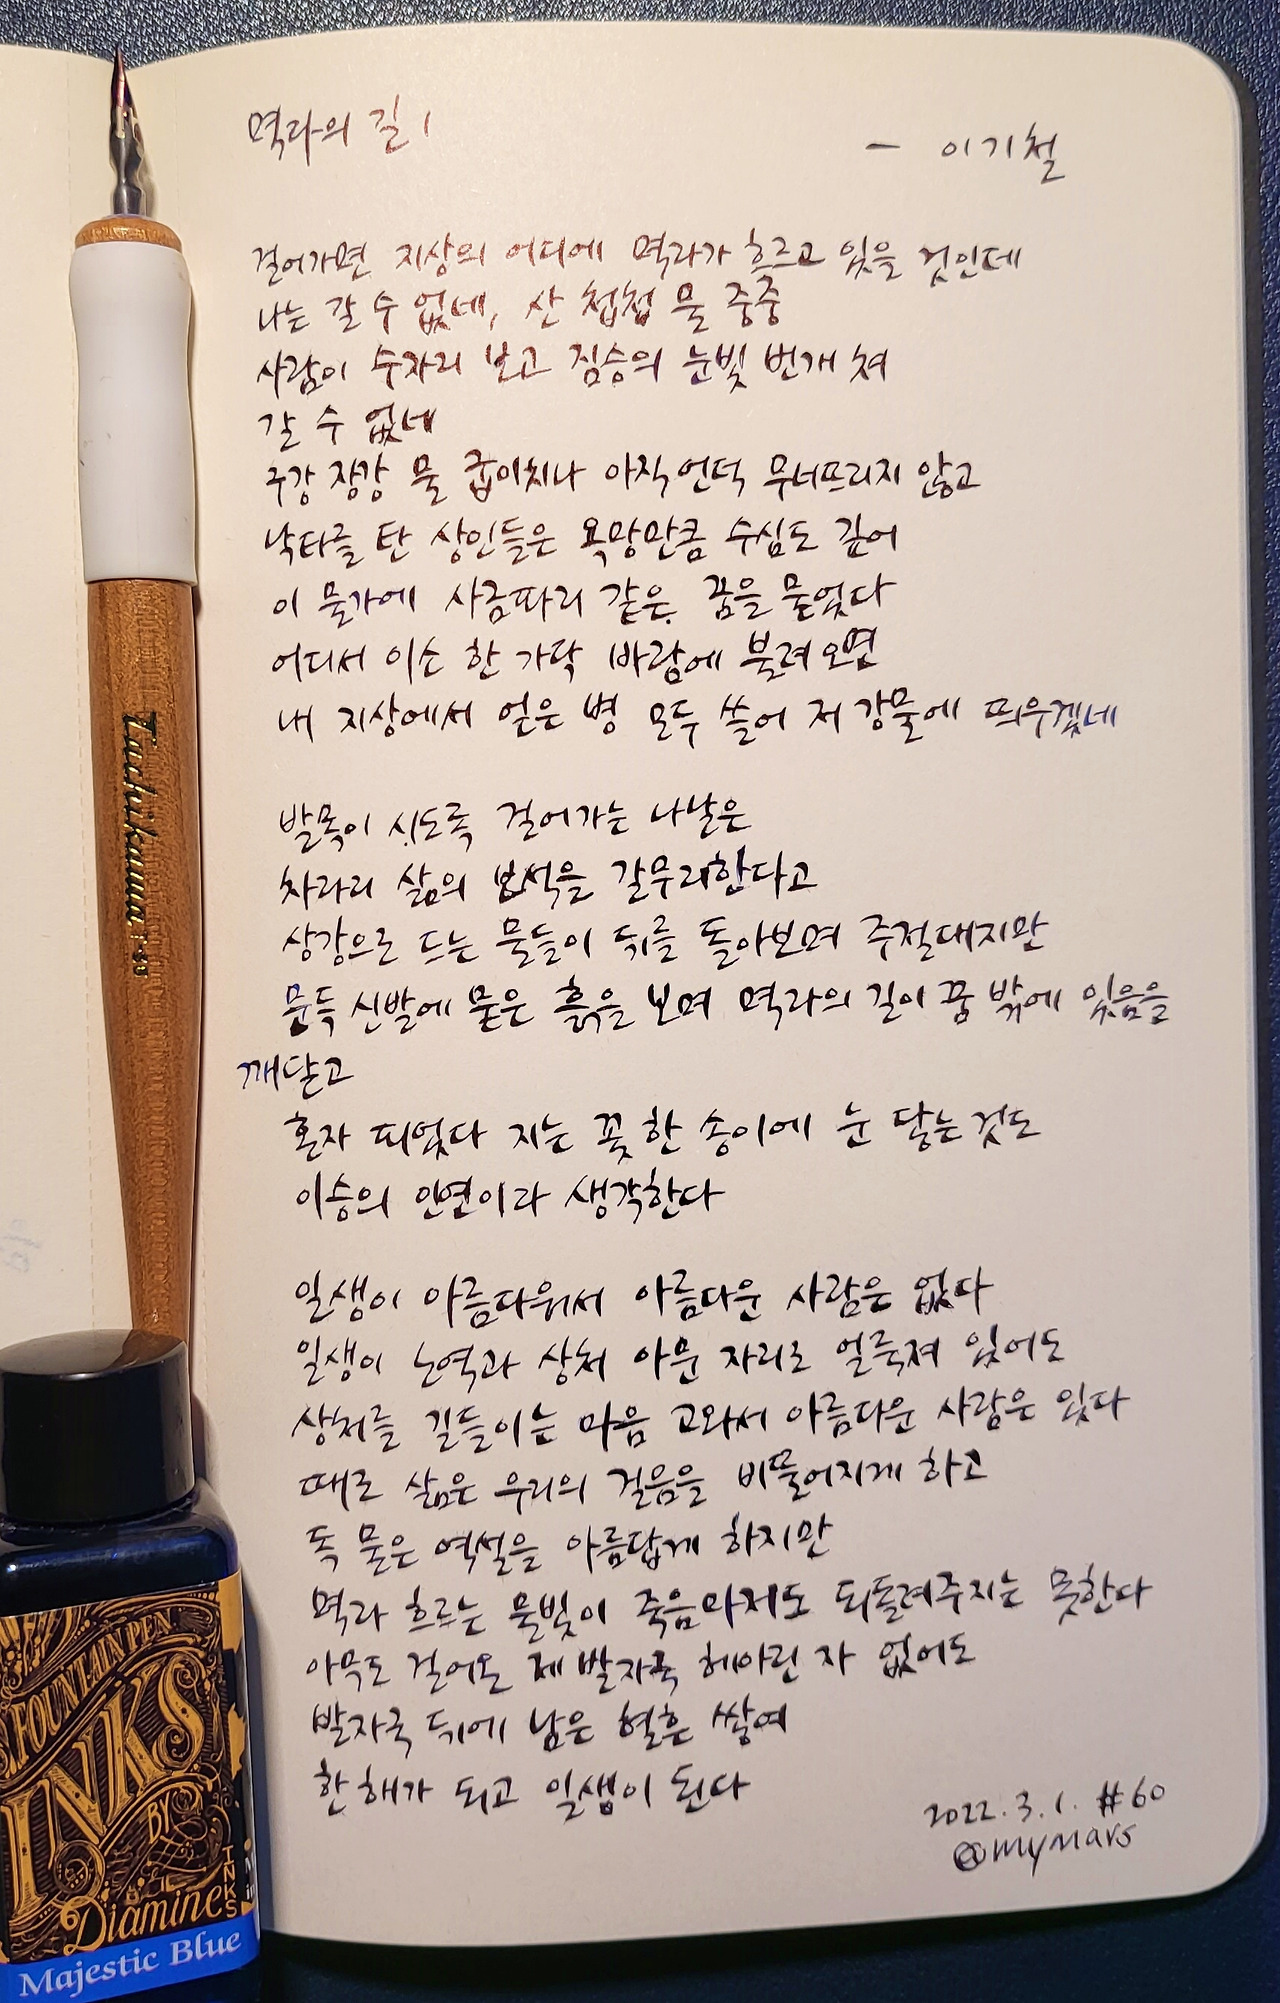 멱라의 길 1
- 이기철
걸어가면 지상의 어디에 멱라가 흐르고 있을 것인데
나는 갈 수 없네, 산 첩첩 물 중중
사람이 수자리 보고 짐승의 눈빛 번개 쳐
갈 수 없네
구강 장강 물 굽이치나 아직 언덕 무너뜨리지 않고
낙타를 탄 상인들은 욕망만큼 수심도 깊어
이 물가에 사금파리 같은 꿈을 묻었다
어디서 이소 한 가닥 바람에 불려오면
내 지상에서 얻은 병 모두 쓸어 저 강물에 띄우겠네
발목이 시도록 걸어가는 나날은
차라리 삶의 보석을 갈무리한다고
상강으로 드는 물들이 뒤를 돌아보며 주절대지만
문득 신발에 묻은 흙을 보며 멱라의 길이 꿈 밖에 있음을
깨닫고
혼자 피었다 지는 꽃 한 송이에 눈 닿는 것도
이승의 인연이라 생각한다
일생이 아름다워서 아름다운 사람은 없다
일생이 노역과 상처 아문 자리로 얼룩져 있어도
상처를 길들이는 마음 고와서 아름다운 사람은 있다
때로 삶은 우리의 걸음을 비뚤어지게 하고
독 묻은 역설을 아름답게 하지만
멱라 흐르는 물빛이 죽음마저도 되돌려주지는 못한다
아무도 걸어온 제 발자국 헤아린 자 없어도
발자국 뒤에 남은 혈흔 쌓여
한 해가 되고 일생이 된다
2022.3.1. #60
@mymars
Tachikawa T-36
FOUNTAIN PEN
INKS
BY
Diamine
INKS
Majestic Blue